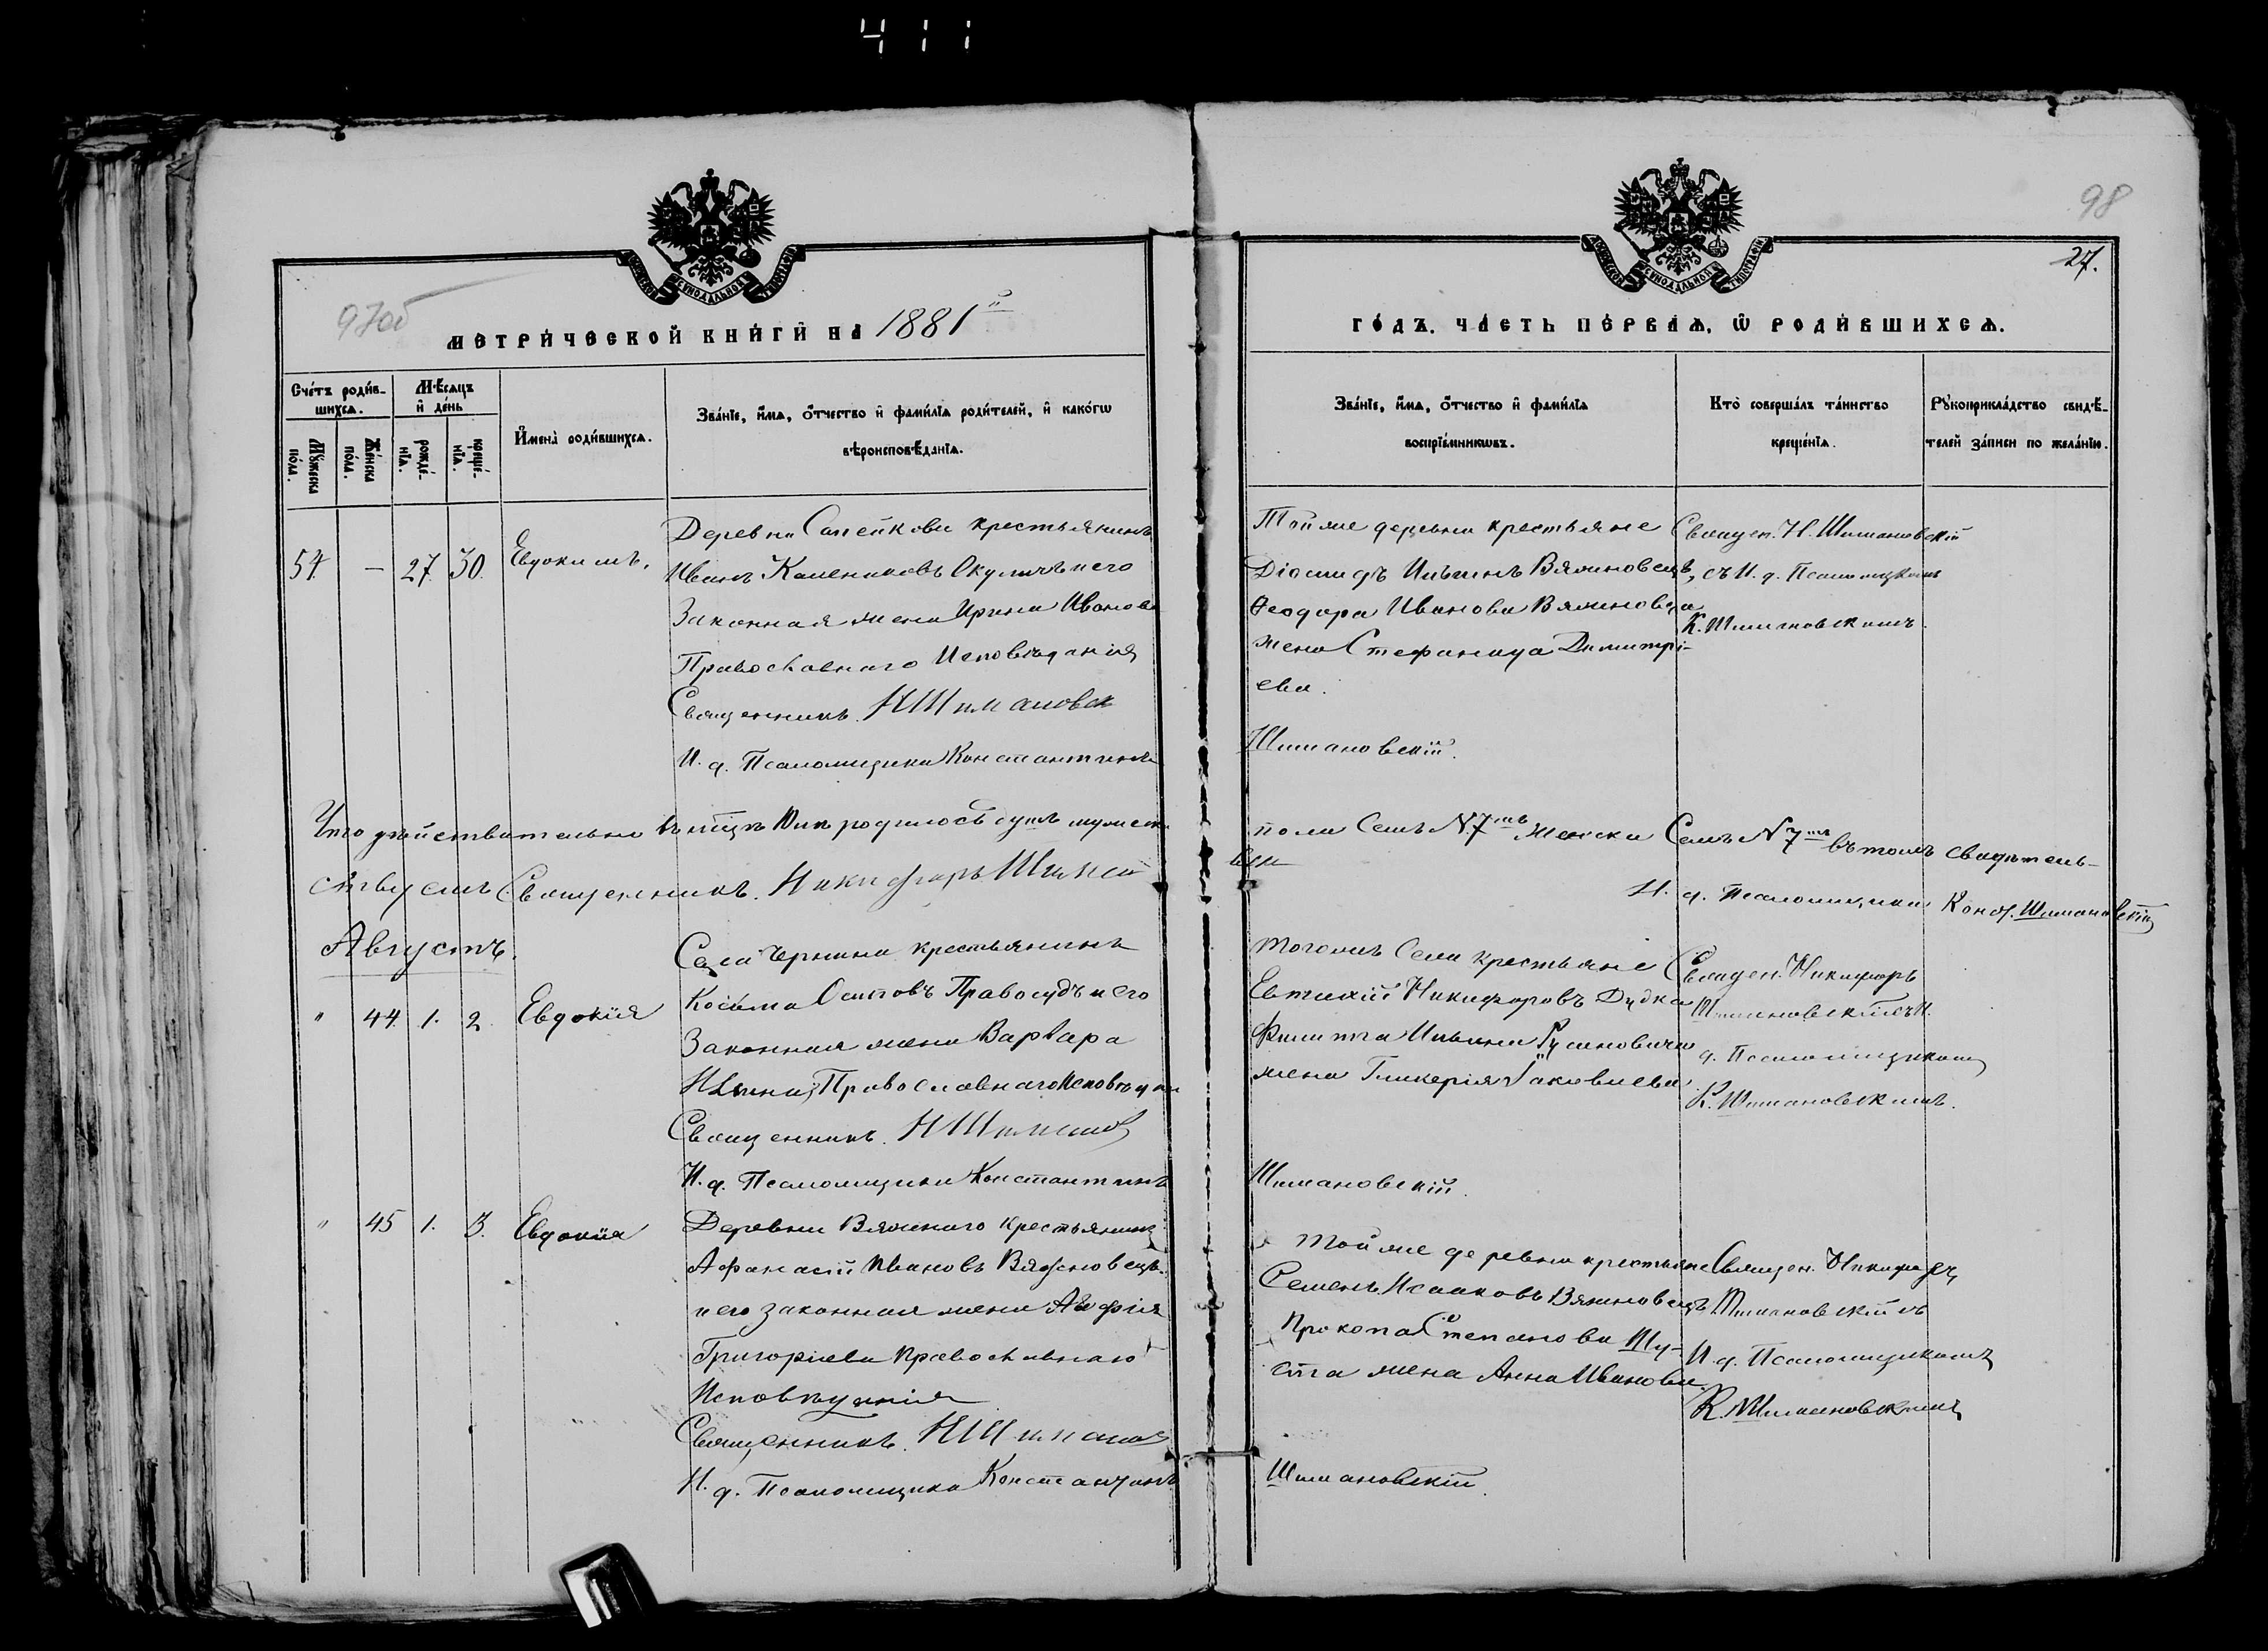 411
98
27.
97об
МЕТРИ́ЧЕСКОЙ КНИ́ГИ НА 1881й
ГО́ДЪ. ЧА́СТЬ ПЕ́РВАѦ, Ѡ РОДИ́ВШИХСѦ.
Сче́тъ роди́в-
шихсѧ.
Мѣ́сѧцъ
и҆ де́нь
Мꙋ́жеска по́ла.
Же́нска по́ла.
рожде́-
нїѧ.
креще́-
нїѧ.
И҆мена̀ роди́вшихсѧ.
Зва́нїе, и҆́мѧ, ѻ҆́тчество и҆ фами́лїѧ роди́телей, и҆ како́гѡ
вѣроисповѣ́данїѧ.
Зва́нїе, и҆́мѧ, ѻ҆́тчество и҆ фами́лїѧ
воспрїе́мникѡвъ.
Кто̀ соверша́лъ та́инство
креще́нїѧ.
Рꙋкоприкла́дство свидѣ́-
телей за́писи по жела́нїю.
54. — 27. 30. Евдокимъ.
Деревни крестьянинъ
Иванъ и его
Законная жена Ирина Иванова
Православнаго Исповѣданія
Священникъ. Н Шимановск
И. д. Псаломщика Константинъ
Той же деревни крестьяне
Діомидъ Ильинъ Вяжновецъ,
Ѳеодора Иванова Вяжновца
жена Стефанида Димитрі-
ева.
Шимановскій.
Священ. Н. Шимановскій
съ И. д. Псаломщикомъ
К. Шимановскимъ.
Что дѣйствительно родилось мужеск
пола Семь №7мъ Женска Семь №7мъ въ томъ свидѣтель-
ствуемъ Священникъ. Никифоръ
И. д. Псаломщика Конст. Шимановскій
Августъ.
" 44. 1. 2. Евдокія
Села Чернина крестьянинъ
Косьма Осиповъ Правосудъ и его
Законная жена Варвара
Православнаго
Священникъ. Н Шиманов
И. д. Псаломщика Константинъ
Тогожъ Села крестьяне
Евтихій Никифоровъ Дудка
Филиппа Ильина Русиновича
жена Гликерія Іаковлева.
Шимановскій.
Священ. Никифоръ
Шимановскій съ И.
д. Псаломщикомъ
К. Шимановскимъ.
" 45 1. 3. Евдокія
Деревни Вяжнаго крестьянинъ
Афанасій Ивановъ Вяжновецъ
и его законная жена
Григоріева Православнаго
Исповѣданія
Священникъ. Н Шиманов
И. д. Псаломщика Константинъ
Той же деревни крестьяне
Семенъ Исааковъ Вяжновецъ
Прокопа Степанова Шу-
ста жена Анна Иванова.
Шимановскій.
Священ. Никифоръ
Шимановскій съ
И. д. Псаломщикомъ
К. Шимановскимъ